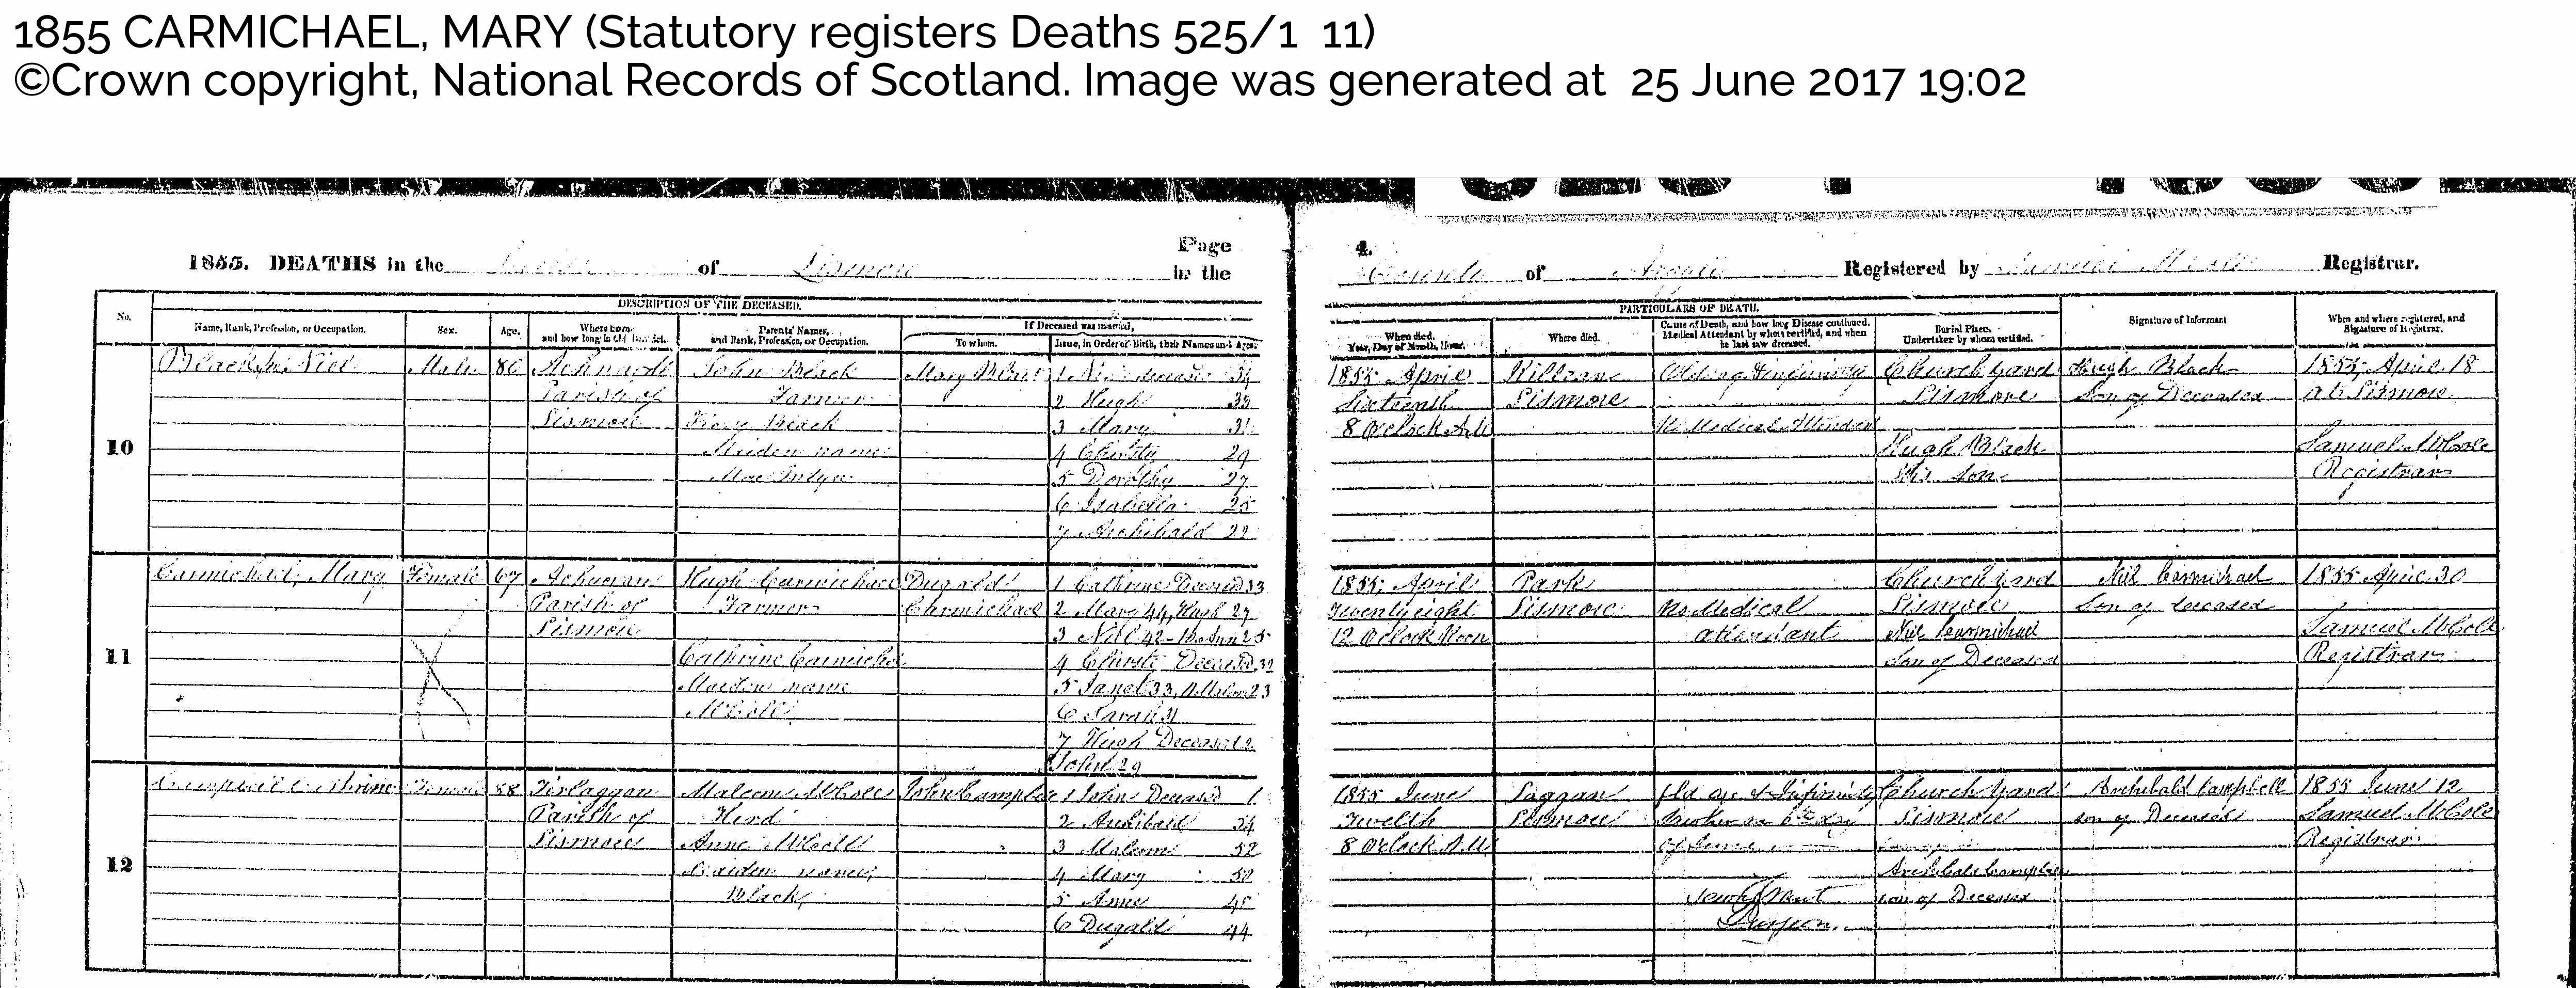 1855 CARMICHAEL, MARY (Statutory registers Deaths 525/1 11)
©Crown copyright, National Records of Scotland. Image was generated at 25 June 2017 19:02
Page
4.
1855. DEATHS in the of Lismore in the
County of Argyll Registered by Samuel McColl Registrar.
DESCRIPTION OF THE DECEASED.
No.
Name, Rank, Profession, or Occupation.
Sex.
Age.
Where born,
and how long in this District.
Parents' Names,
and Rank, Profession, or Occupation.
If Deceased was married,
To whom.
Issue, in Order of Birth, their Names and Ages.
PARTICULARS OF DEATH.
When died.
Year, Day of Month, Hour.
Where died.
Cause of Death, and how long Disease continued.
Medical Attendant by whom certified, and when
he last saw deceased.
Burial Place.
Undertaker by whom certified.
Signature of Informant
When and where registered, and
Signature of Registrar.
10
Male
86
Parish of
Lismore
John Black
Farmer
Black
Maiden name
1 deceased 34
2 Hugh 33
3 Mary 31
4 Christy 29
5 Dorothy 27
6 Isabella 25
7 Archibald 22
1855 April
Sixteenth
8 O'clock A.M
Killean
Lismore
No Medical Attendant
Church yard
Lismore
Hugh Black
His Son
Hugh Black
Son of Deceased
1855 April 18
at Lismore
Samuel McColl
Registrar
11
Carmichael, Mary
Female
67
Parish of
Lismore
Hugh Carmichael
Farmer
Cathrine Carmichael
Maiden name
McColl
Dugald
Carmichael
1 Cathrine Deceased 33
2 Mary 44, Hugh 27
3 Neil 42 - Ann 25
4 Deceased 32
5 Janet 33, 23
6 Sarah 31
7 Hugh Deceased 2
John 29
1855 April
Twenty eight
12 O'clock Noon
Park
Lismore
No Medical
attendant
Church yard
Lismore
Neil Carmichael
Son of Deceased
Neil Carmichael
Son of deceased
1855 April 30
Samuel McColl
Registrar
12
Campbell Cathrine
Female
88
Tirlaggan
Parish of
Lismore
Malcom McColl
Herd
Anne McColl
Maiden name
Black
John Campbell
1 John Deceased 1
2 Archibald 54
3 Malcom 52
4 Mary 50
5 Anne 45
6 Dugald 44
1855 June
Twelth
8 O'clock A.M
Laggan
Lismore
Old age & Infirmity
of June
Surgeon
Church yard
Lismore
Archibald Campbell
son of Deceased
Archibald Campbell
son of Deceased
1855 June 12
Samuel McColl
Registrar